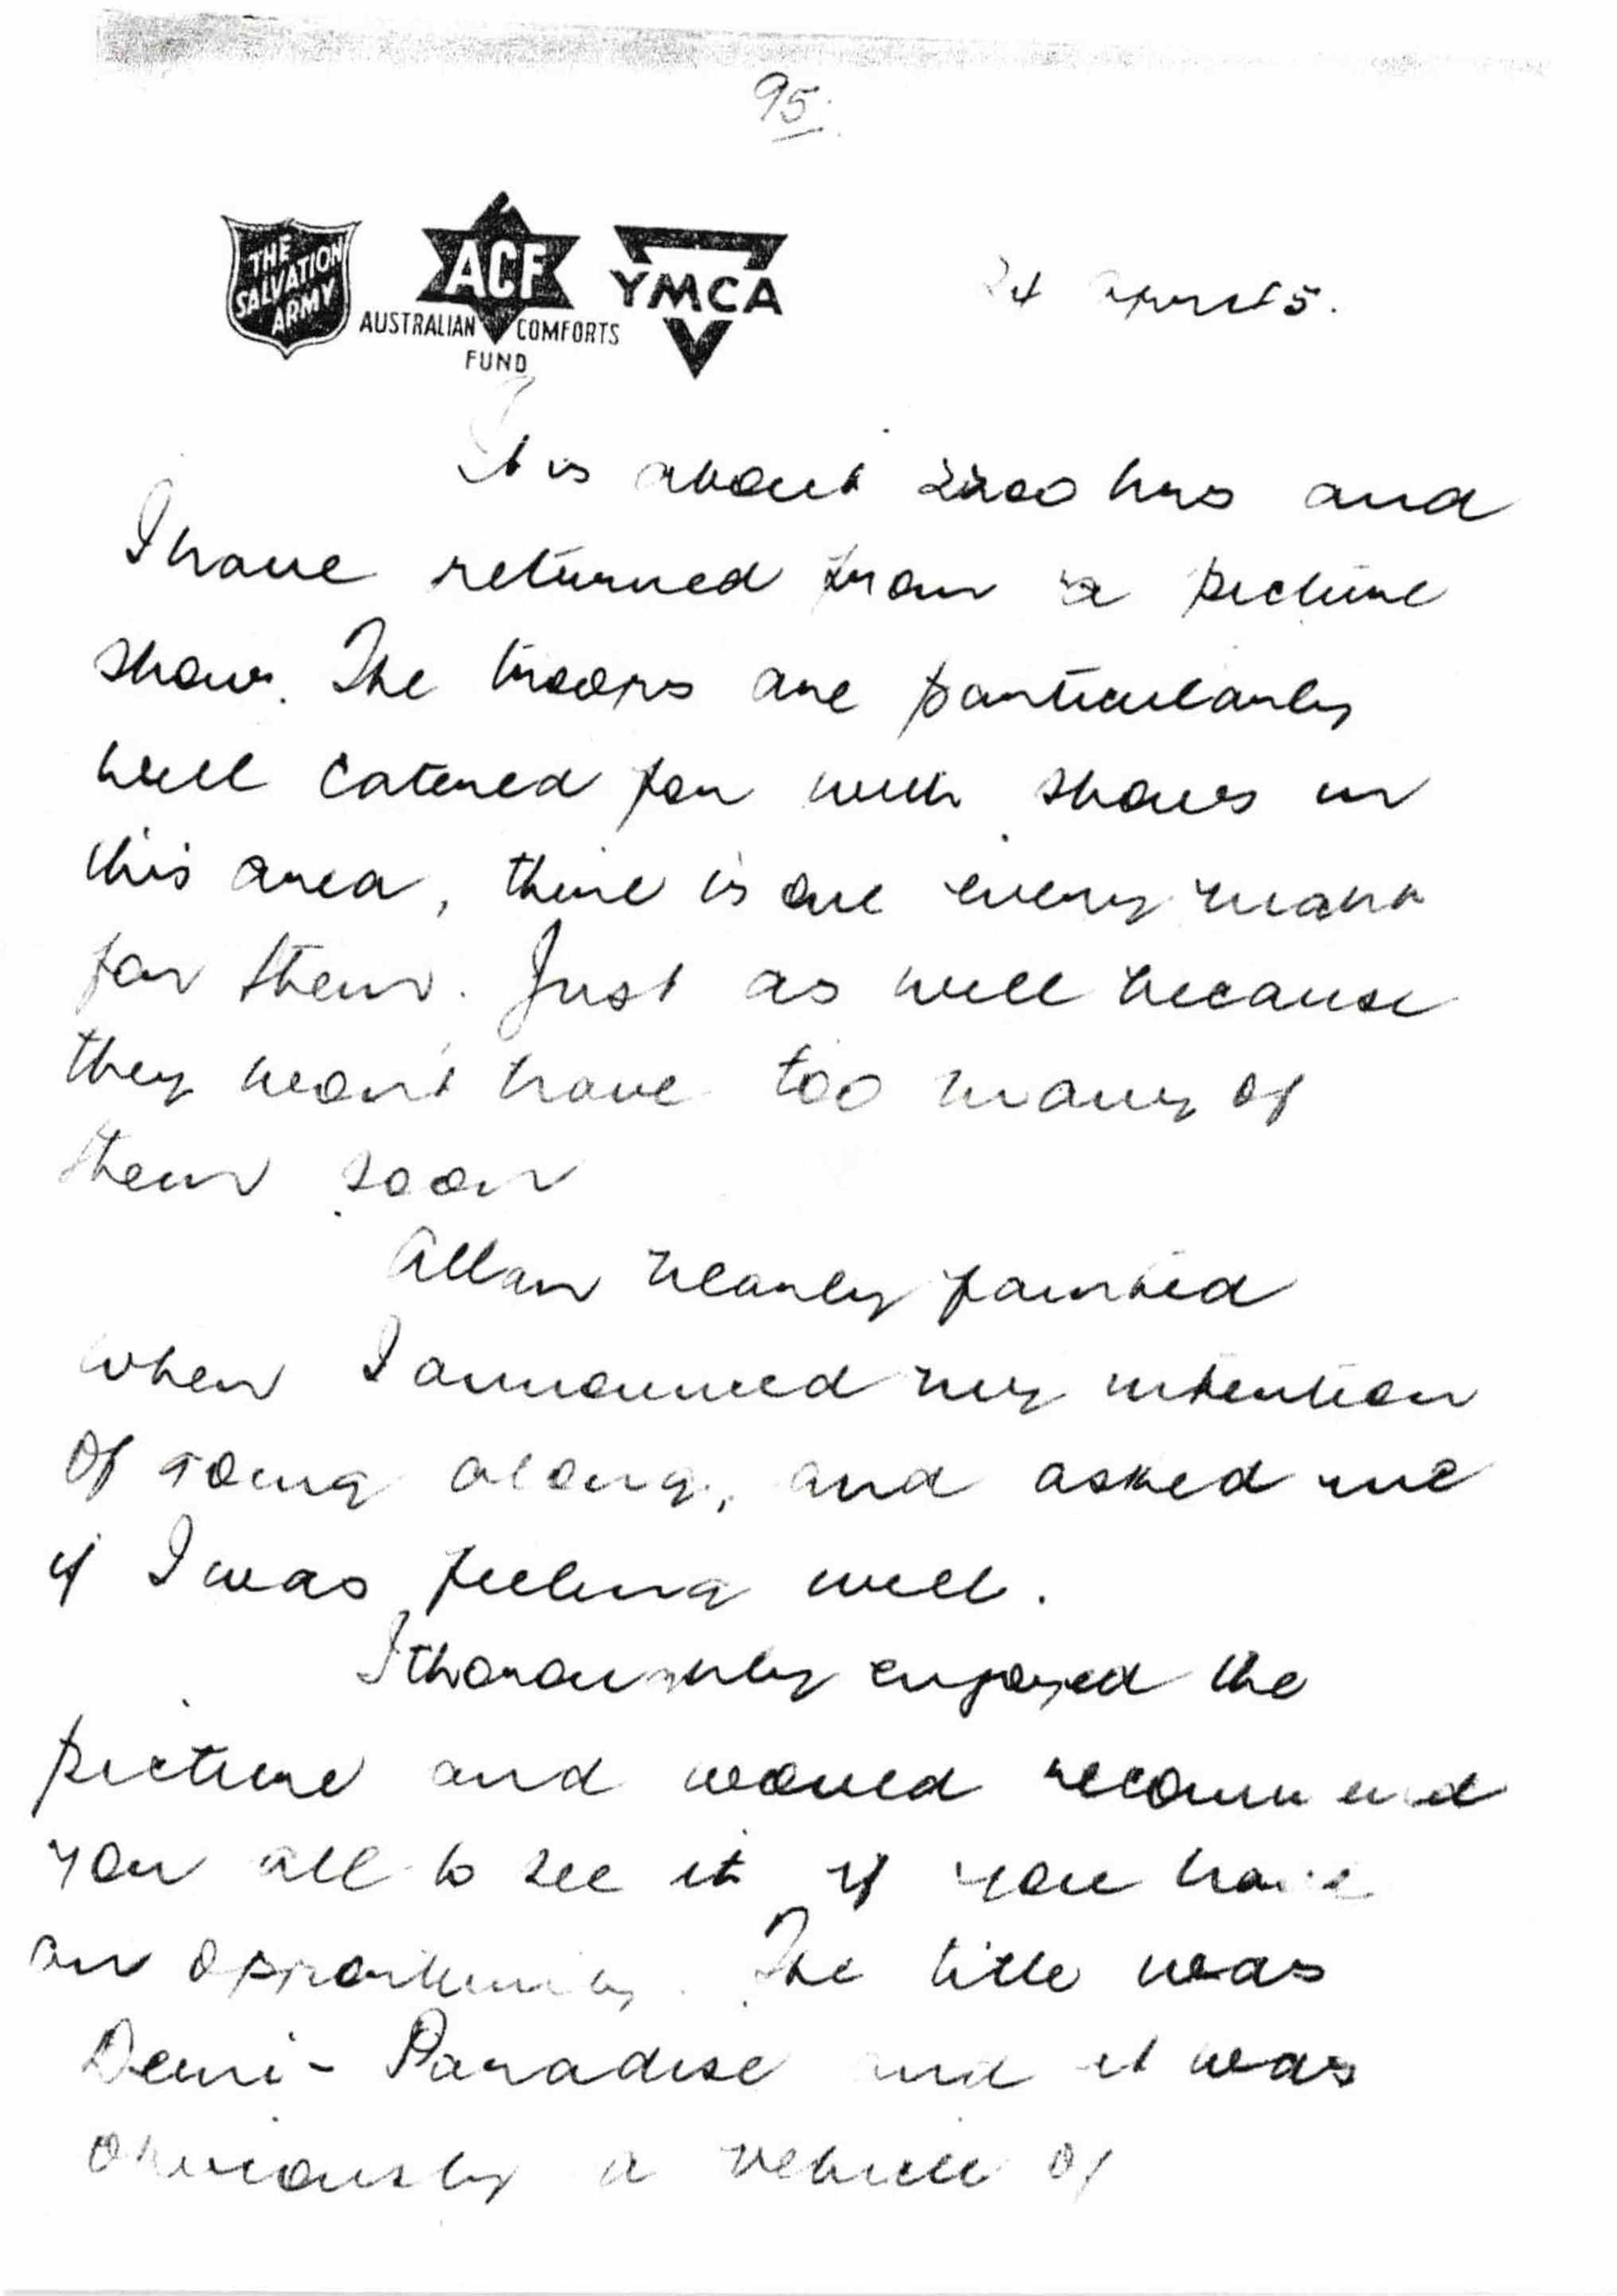 95.
THE
SALVATION
ARMY
ACF
AUSTRALIAN COMFORTS
FUND
YMCA
24 April 5.
It is about 2200 hrs and
I have returned from a picture
show. The troops are particularly
well catered for with shows in
this area, there is one every night
for them. Just as well because
they won't have too many of
them soon
Allan nearly fainted
when I announced my intention
of going along, and asked me
if I was feeling well.
I thoroughly enjoyed the
picture and would recommend
you all to see it if you have
an opportunity. The title was
Demi-Paradise and it was
obviously a vehicle of